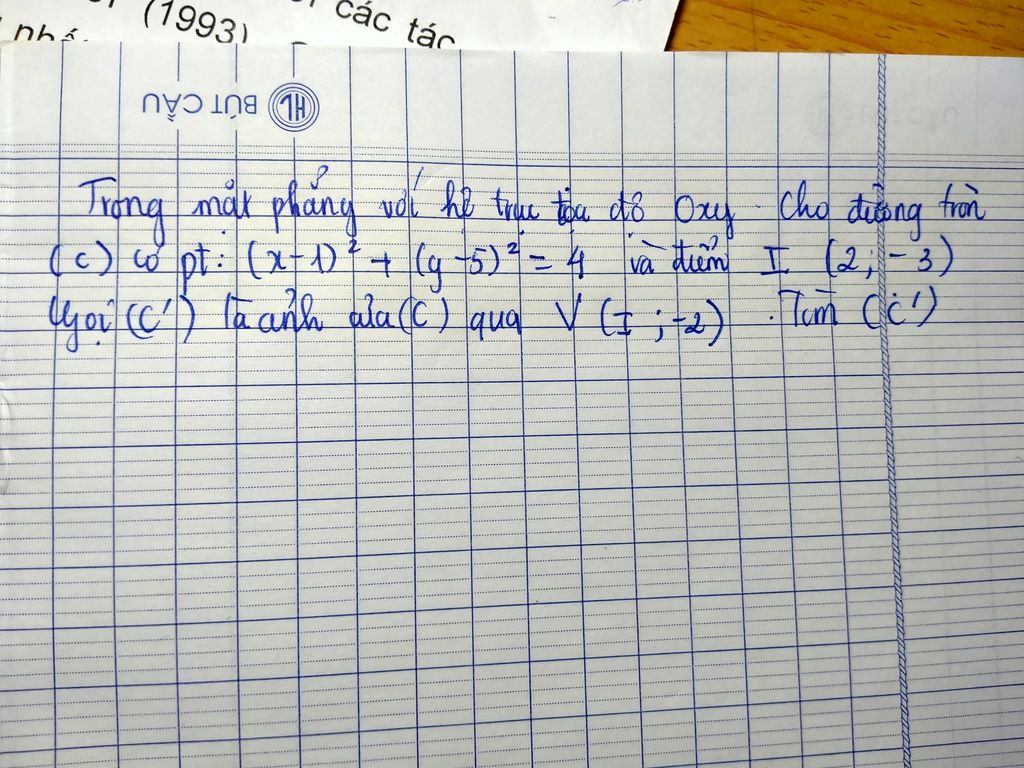 (1993)
các tác
BÚT CẦU
HL
Trong mặt phẳng với hệ trục tọa độ Oxy. Cho đường tròn
(C) có pt: (x-1)² + (y-5)² = 4 và điểm I (2; -3)
Gọi (C') là ảnh của (C) qua V (I ; -2). Tìm (C')